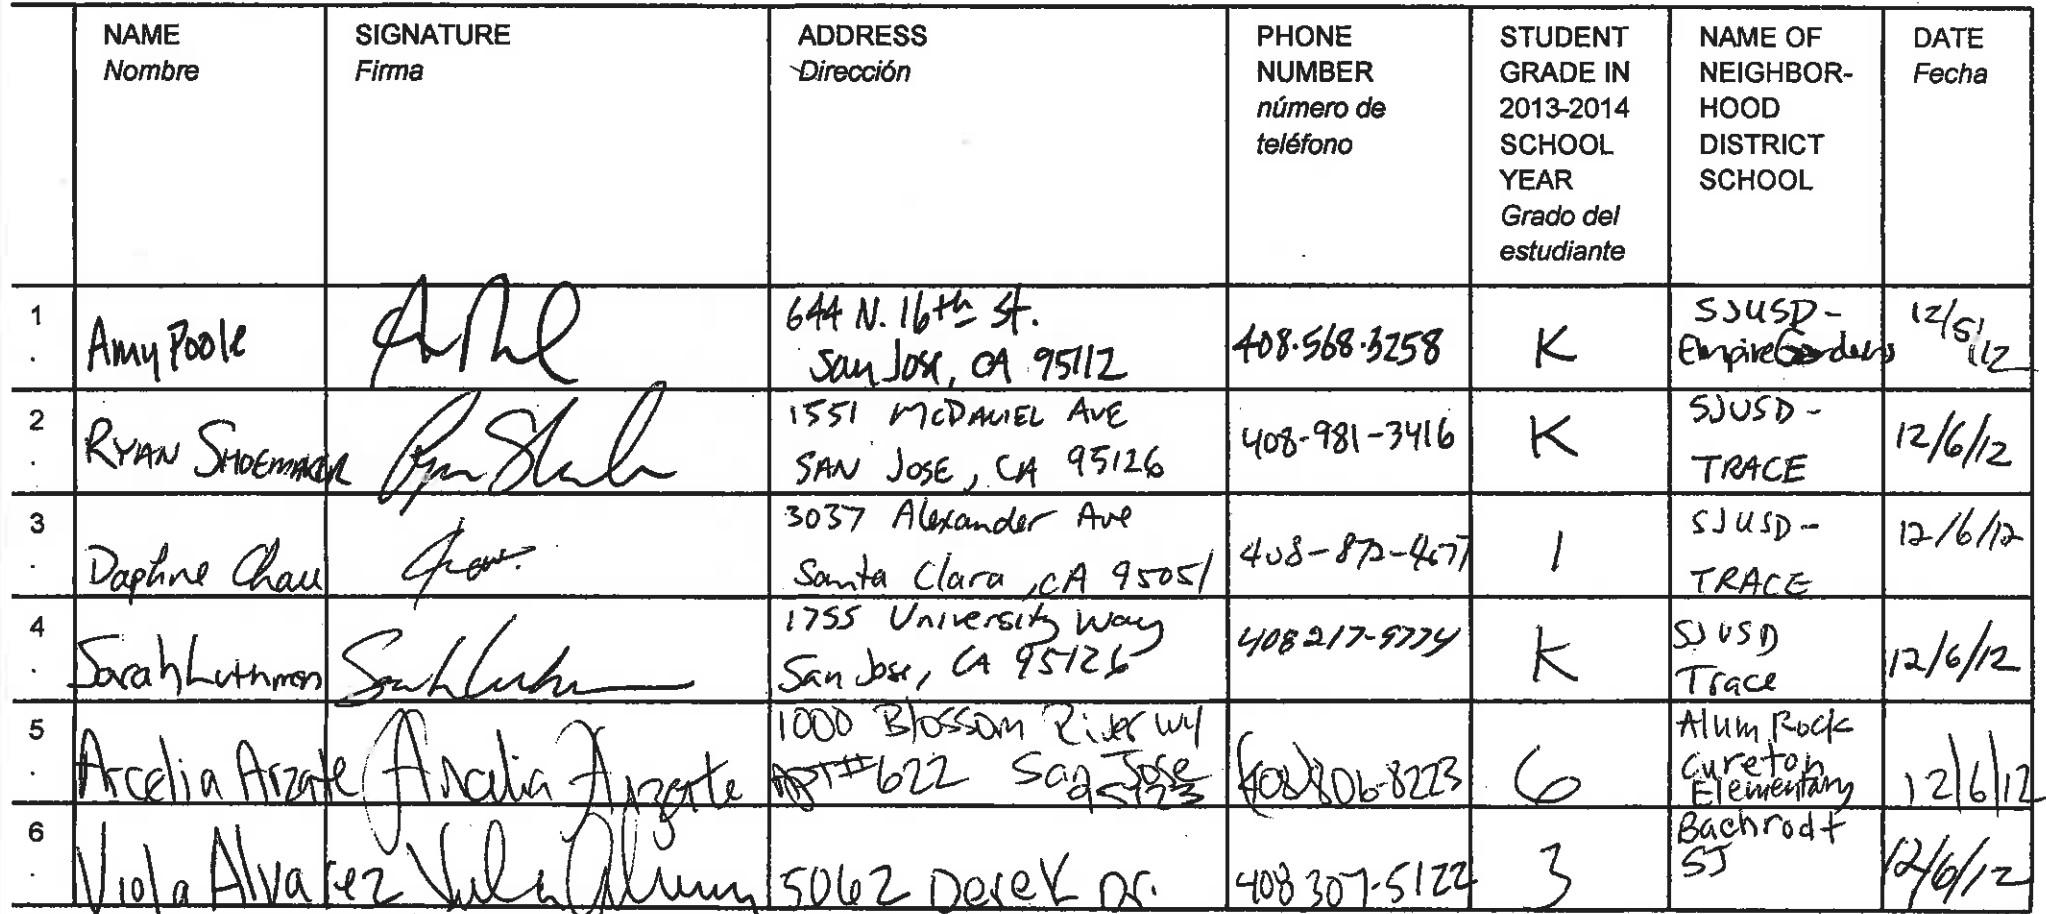 NAME
Nombre
SIGNATURE
Firma
ADDRESS
Dirección
PHONE
NUMBER
número de
teléfono
STUDENT
GRADE IN
2013-2014
SCHOOL
YEAR
Grado del
estudiante
NAME OF
NEIGHBOR-
HOOD
DISTRICT
SCHOOL
DATE
Fecha
1
.
Amy Poole
644 N. 16th St.
San Jose, CA 95112
408.568.3258
K
SJUSD-
Empire Gardens
12/5/12
2
.
RYAN SHOEMAKER
1551 McDANIEL AVE
SAN JOSE, CA 95126
408-981-3416
K
SJUSD-
TRACE
12/6/12
3
.
Daphne Chau
3037 Alexander Ave
Santa Clara, CA 95051
1
SJUSD-
TRACE
12/6/12
4
.
Sarah Luthman
1755 University Way
San Jose, CA 95126
K
SJUSD
Trace
12/6/12
5
.
Arcelia Arzate
Arcelia Arzate
1000 Blossom River Wy
APT#622 San Jose
95123
(408)806-8223
6
Alum Rock
Cureton
Elementary
12/6/12
6
.
Viola Alvarez
5062 Derek Dr.
408 307-5122
3
Bachrodt
SJ
12/6/12